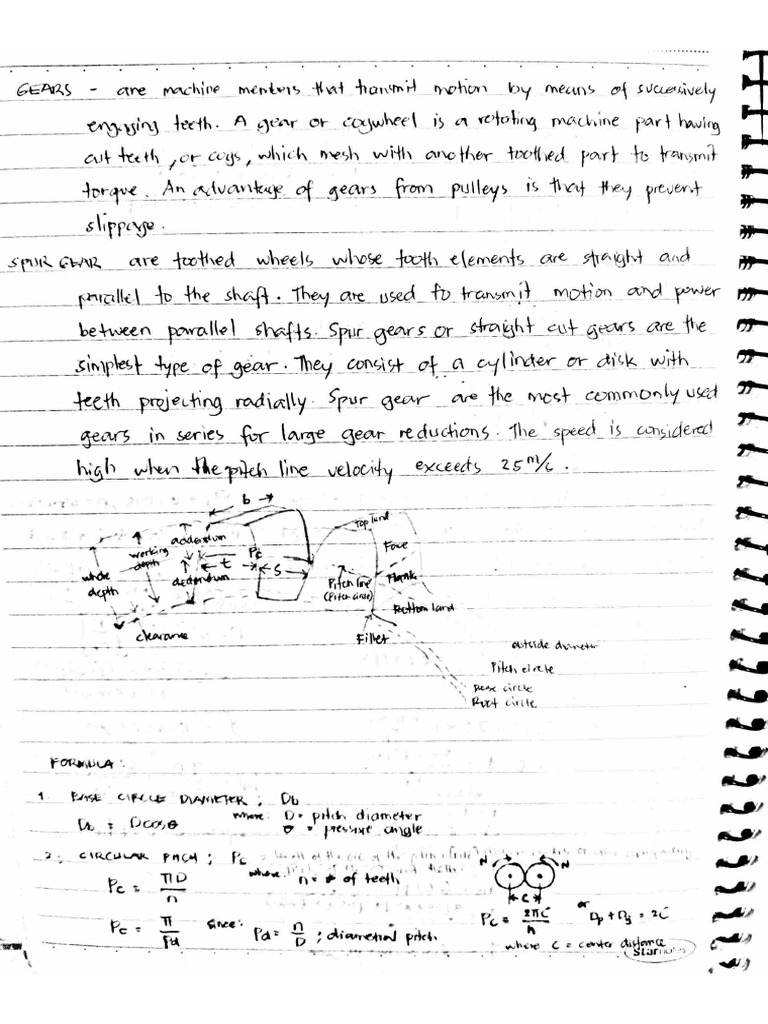 GEARS - are machine mentors that transmit motion by means of successively
engaging teeth. A gear or cogwheel is a rotating machine part having
cut teeth, or cogs, which mesh with another toothed part to transmit
torque. An advantage of gears from pulleys is that they prevent
slippage.
SPUR GEAR are toothed wheels whose tooth elements are straight and
parallel to the shaft. They are used to transmit motion and power
between parallel shafts. Spur gears or straight cut gears are the
simplest type of gear. They consist of a cylinder or disk with
teeth projecting radially. Spur gear are the most commonly used
gears in series for large gear reductions. The speed is considered
high when the pitch line velocity exceeds 25 m/s.
b
top land
addendum
working depth
Pc
Face
t
s
whole depth
dedendum
Pitch line (Pitch circle)
Flank
Bottom land
clearance
Fillet
outside diameter
Pitch circle
Base circle
Root circle
FORMULA:
1. BASE CIRCLE DIAMETER; Db
Db = Dcosθ where D = pitch diameter
θ = pressure angle
2. CIRCULAR PITCH; Pc
Pc = πD/n where n = # of teeth
N N
C
Pc = π/Pd since: Pd = n/D ; diametral pitch
Pc = 2πC/n or Dp + Dg = 2C
where C = center distance
Star